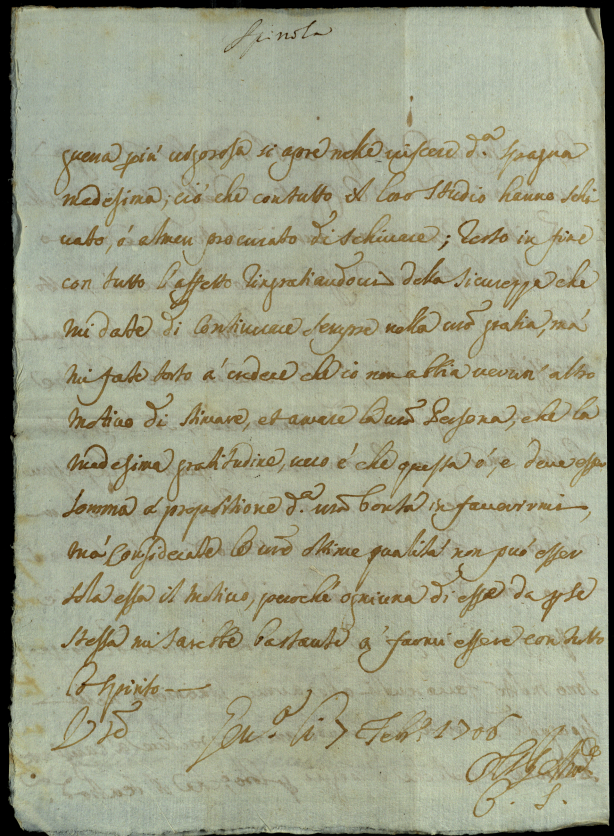 Spinola
guerra più vigorosa si apre nelle viscere d.ª Spagna
medesima; ciò che con tutto il loro studio hanno schi
vato, ó almen procurato di schivare; resto in fine
con tutto l'affetto ringratiandovi della sicurezza che
mi date di continuare sempre nella vrã gratia, má
mi fate torto a' credere che io non abbia verun' altro
motivo di stimare, et amare la vrã Persona, che la
medesima gratitudine, vero é che questa ó, e' deve esser
somma á proportione d.ª vrã bontá in favorirmi,
má considerate le vrẽ ottime qualitá non puó esser
sola essa il motivo, perche ogniuna di esse da per se
stessa mi sarebbe bastante a' farmi essere con tutto
lo spirito
Gen.ª li 7 Febr. 1706
C. S.